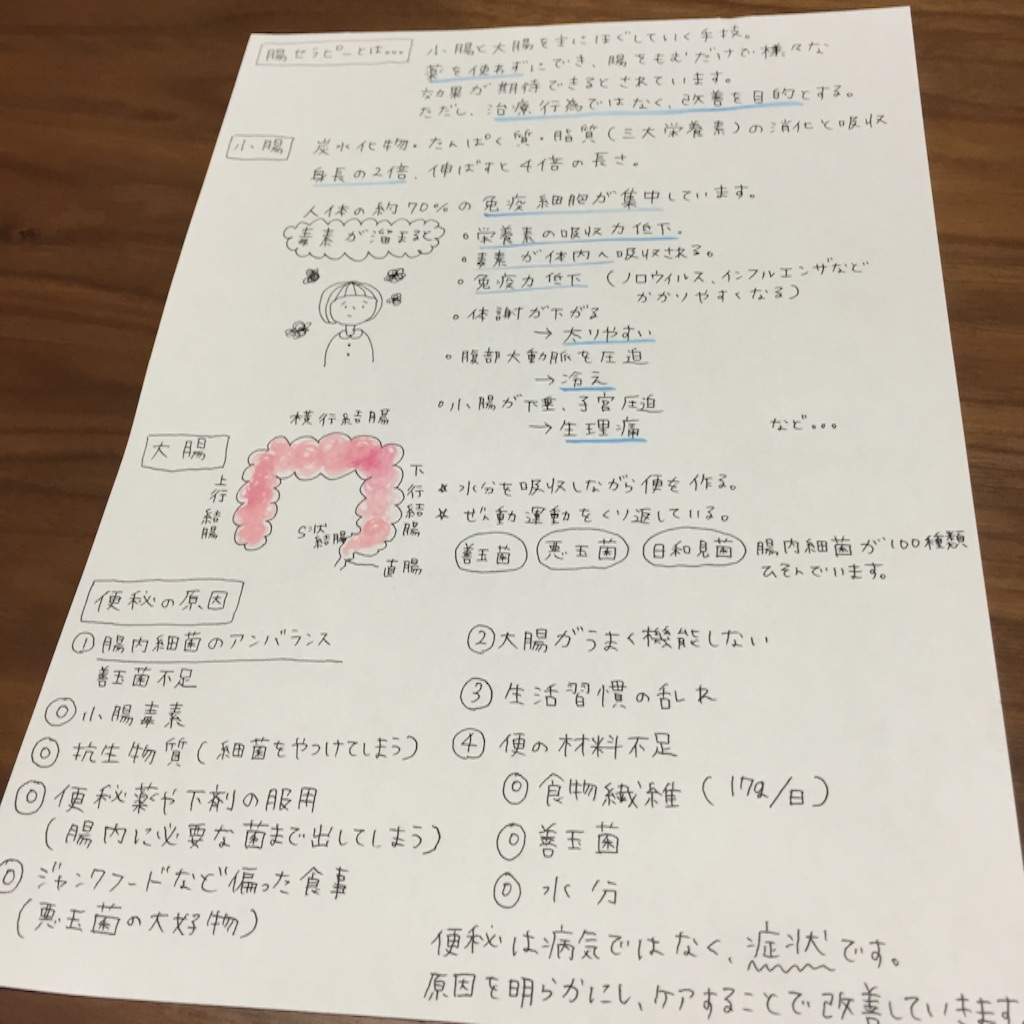 腸セラピーとは…
小腸と大腸を主にほぐしていく手技。
薬を使わずにでき、腸をもむだけで様々な
効果が期待できるとされています。
ただし、治療行為ではなく、改善を目的とする。
小腸
炭水化物・たんぱく質・脂質(三大栄養素)の消化と吸収
身長の2倍、伸ばすと4倍の長さ。
人体の約70%の免疫細胞が集中しています。
毒素が溜まると
○栄養素の吸収力低下。
○毒素が体内へ吸収される。
○免疫力低下(ノロウイルス、インフルエンザなど
かかりやすくなる)
○体謝が下がる
→太りやすい
○腹部大動脈を圧迫
→冷え
○小腸が下垂、子宮圧迫
→生理痛
など…
大腸
横行結腸
上行結腸
下行結腸
S状結腸
直腸
*水分を吸収しながら便を作る。
*ぜん動運動をくり返している。
善玉菌 悪玉菌 日和見菌 腸内細菌が100種類
ひそんでいます。
便秘の原因
①腸内細菌のアンバランス
善玉菌不足
◎小腸毒素
◎抗生物質(細菌をやっつけてしまう)
◎便秘薬や下剤の服用
(腸内に必要な菌まで出してしまう)
◎ジャンクフードなど偏った食事
(悪玉菌の大好物)
②大腸がうまく機能しない
③生活習慣の乱れ
④便の材料不足
◎食物繊維(17g/日)
◎善玉菌
◎水分
便秘は病気ではなく、症状です。
原因を明らかにし、ケアすることで改善していきます